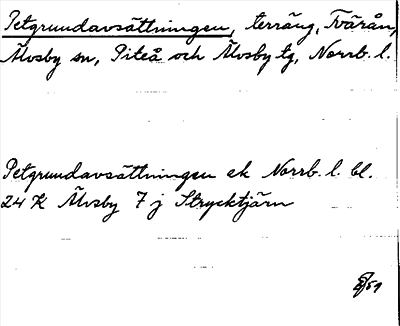 Petgrundavsättningen, terräng, Tvärån,
Älvsby sn, Piteå och Älvsby tg, Norrb. l.
Petgrundavsättningen ek Norrb. l. bl.
24 K Älvsby 7 j Strycktjärn